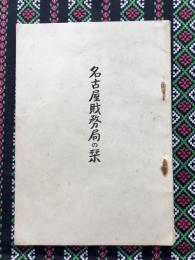 名古屋財務局の栞